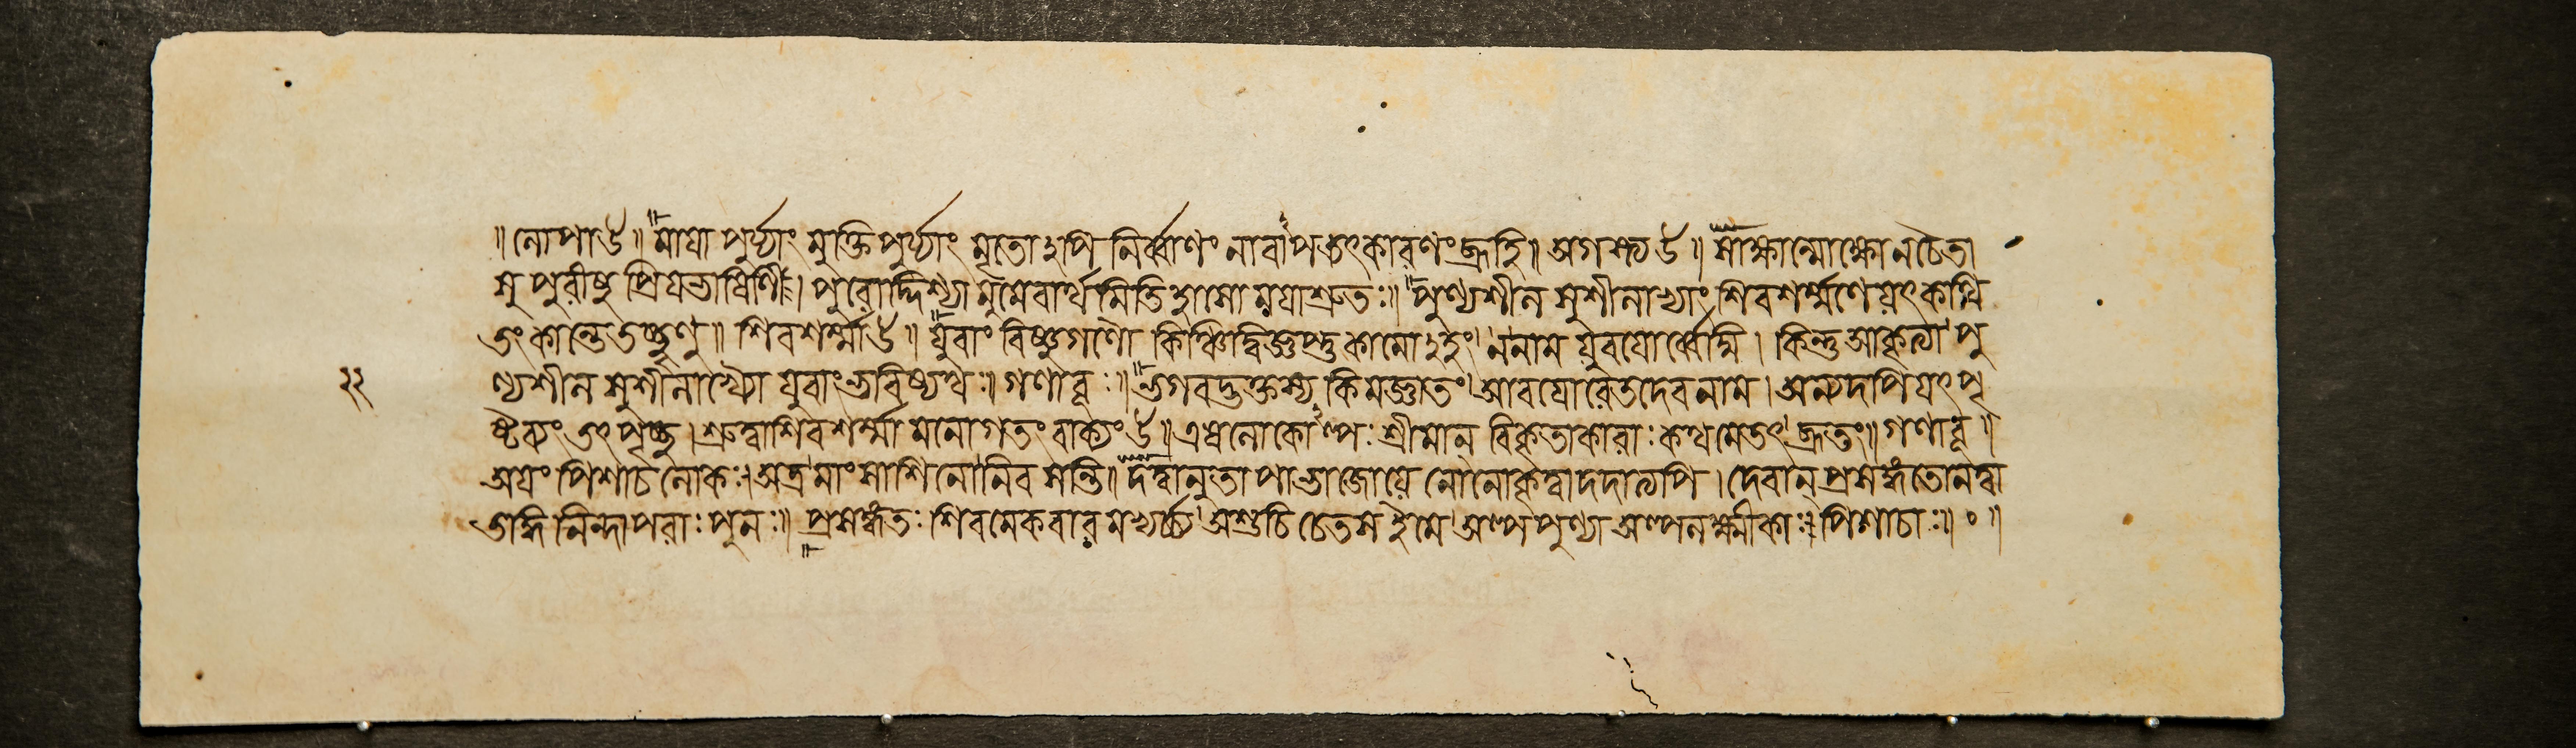 ॥ লোপা উ॥ মায়া পুর্য্যাং মুক্তি পুর্য্যাং মৃতোঽপি নির্ব্বাণং নাবাপ তৎকারণং ব্রূহি॥ অগস্ত্য উ॥ সাক্ষান্মোক্ষো নচৈতা
সু পুরীষু প্রিয়ভাষিণি। পুরোদ্দিশ্যামুমেবার্থমিতিহাসো ময়াশ্রুতঃ॥ পুণ্যশীল সুশীলাখ্যাং শিবশর্ম্মণে যৎ কথি
তং কান্তে তচ্ছৃণু॥ শিবশর্ম্মা উ॥ যুবাং বিষ্ণুগণৌ কিঞ্চিদ্বিজ্ঞপ্তুকামোঽহং ননাম যুবয়োর্ব্বেদ্মি। কিন্তু আকৃত্যা পু
২২ ণ্যশীল সুশীলাখ্যৌ যুবাং ভবিষ্যথঃ॥ গণাবূ॰॥ ভগবদ্ভক্তস্য কিমজ্ঞাতং আবয়োরেতদেবনাম। অন্যদপি যৎ পৃ
ষ্টব্যং তৎ পৃচ্ছ। শ্রুত্বা শিবশর্ম্মা মনোগতং বাক্যং উ॥ এষ লোকোল্পঃ শ্রীমান্ বিকৃতাকারাঃ কথমেতৎ ব্রূতং॥ গণাবূ॥
অয়ং পিশাচলোকঃ। অত্র মাংসাশিনো নিবসন্তি॥ দত্বানুতাপভাজো যে নোনোকৃত্বা দদাত্যপি। দেবান্ প্রসঙ্গতোনত্বা
নিন্দাপরাঃ পুনঃ॥ প্রসঙ্গতঃ শিবমেকবারমভ্যর্চ্চ্য অশুচি চেতস ইমে অল্পপুণ্যা অল্পলক্ষ্মীকাঃ পিশাচাঃ॥ ০ ॥